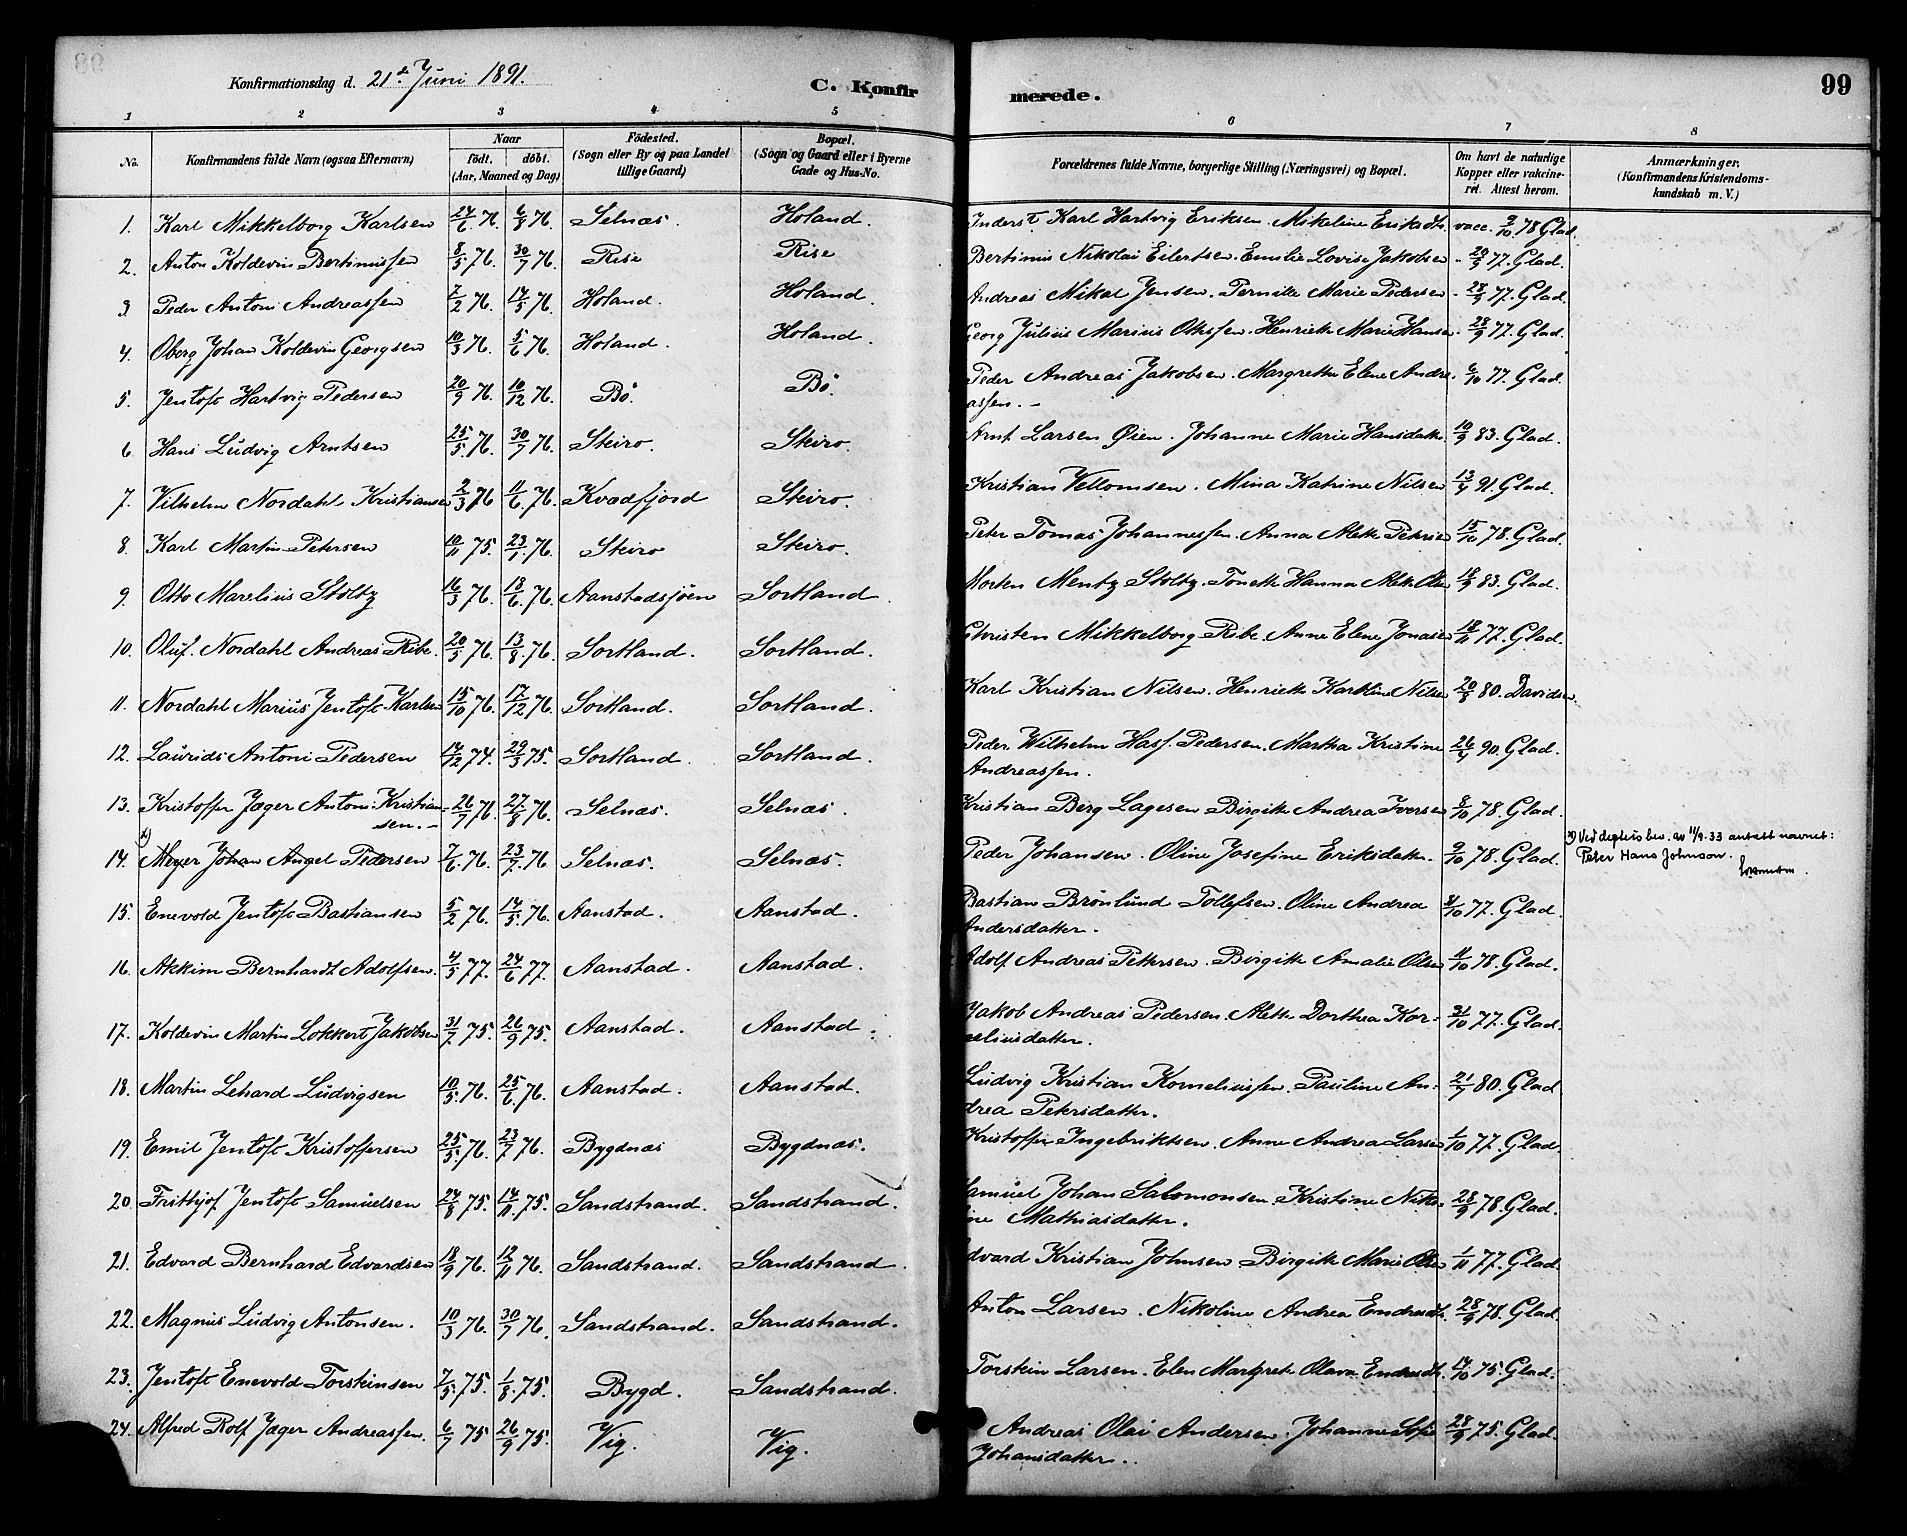 Konfirmationsdag d. 21de Juni 1891.
C. Konfir merede.
99
1 2 3 4 5 6 7 8
No.
Konfirmandens fulde Navn (ogsaa Efternavn)
Naar
födt. döbt.
(Aar, Maaned og Dag)
Födested.
(Sogn eller By og paa Landet
tillige Gaard)
Bopæl.
(Sogn og Gaard eller i Byerne
Gade og Hus-No.
Forældrenes fulde Navne, borgerlige Stilling (Næringsvei) og Bopæl.
Om havt de naturlige
Kopper eller vakcine-
ret. Attest herom.
Anmærkninger.
(Konfirmandens Kristendoms-
kundskab m. V.)
1. Karl Mikkelborg Karlsen 24/6 76. 6/8 76. Selnæs. Holand. Inderst Karl Hartvig Eriksen. Mikeline Eriksdtr. vacc. 2/10 78 Glad.
2. Anton Koldevin Bertinussen 8/5 76. 30/7 76. Rise Rise Bertinus Nikolai Eilertsen. Emilie Lovise Jakobsen - 29/9 77. Glad.
3. Peder Antoni Andreassen 7/2 76. 14/5 76. Holand. Holand. Andreas Mikal Jensen. Pernille Marie Pedersen - 28/9 77. Glad.
4. Oberg Johan Koldevin Georgsen 10/3 76. 5/6 76. Holand. Holand. Georg Julius Marius Olssen. Henriette Marie Hansen 28/9 77. Glad.
5. Jentoft Hartvig Pedersen 20/9 76. 10/12 76. Bö. Bö. Peder Andreas Jakobsen. Margrethe Elene Andre- 6/10 77. Glad.
assen. -
6. Hans Ludvig Arntsen 25/5 76. 30/7 76. Steiro. Steiro. Arnt Larsen Øien. Johanne Marie Hansdatter 10/9 83. Glad.
7. Vilhelm Nordahl Kristiansen 2/3 76 11/6 76. Kvadfjord Steiro. Kristian Vellomsen. Mina Katrine Nilsen 13/4 91. Glad.
8. Karl Martin Petersen 10/11 75. 23/1 76. Steiro Steiro. Peter Tomas Johannessen. Anna Alette Petersen 15/10 78. Glad.
9. Otto Marelius Stoltz 16/3 76. 18/6 76. Aanstadsjöen Sortland. Morten Mentz Stoltz. Tonette Hanna Alette Olsen 18/9 83. Glad.
10. Oluf Nordahl Andreas Ribe. 20/3 76. 13/8 76. Sortland. Sortland. Christen Mikkelborg Ribe. Anne Elene Jonasen 18/11 77. Glad.
11. Nordahl Marius Jentoft Karlsen 15/10 76. 17/12 76. Sortland. Sortland. Karl Kristian Nilsen. Henriette Karoline Nilsen 20/8 80. Davidsen.
12. Laurids Antoni Pedersen 14/12 74. 29/3 75. Sortland. Sortland. Peder Wilhelm Hass Pedersen. Martha Kristine 26/4 90. Glad.
Andreassen.
13. Kristoffer Jæger Antoni Kristian- 26/7 76. 27/8 76. Selnæs. Selnæs. Kristian Berg Lagesen Birgitte Andrea Iversen 8/10 78. Glad.
sen. -
14. x) Meyer Johan Angel Pedersen 7/6 76. 23/7 76 Selnæs. Selnæs. Peder Johansen. Oline Josefine Eriksdatter. 9/10 78. Glad. x) Ved dept's bev. av 11/9.33 antatt navnet:
Peter Hans Johnson.
15. Enevold Jentoft Bastiansen 5/2 76. 14/5 76. Aanstad. Aanstad. Bastian Brönlund Tollefsen. Oline Andrea 31/10 77. Glad.
Andersdatter.
16. Akkim Bernhardt Adolfsen. 4/5 77. 24/6 77. Aanstad. Aanstad. Adolf Andreas Pettersen. Birgitte Amalie Olsen 11/10 78. Glad.
17. Koldevin Martin Lokkert Jakobsen 31/7 75. 26/9 75. Aanstad. Aanstad. Jakob Andreas Pedersen. Alette Dorthea Kor- 31/10 77. Glad.
neliusdatter.
18. Martin Lehard Ludvigsen 10/5 76. 25/6 76. Aanstad. Aanstad. Ludvig Kristian Korneliussen. Pauline An- 21/7 80. Glad
drea Petersdatter.
19. Emil Jentoft Kristoffersen 25/5 76. 23/7 76. Bygdnæs Bygdnæs. Kristoffer Ingebriktsen. Anne Andrea Larsen 1/10 77. Glad.
20. Frithjof Jentoft Samuelsen 24/8 75. 14/11 75. Sandstrand. Sandstrand. Samuel Johan Salomonsen. Kristine Niko- 28/9 78. Glad.
line Mathiasdatter.
21. Edvard Bernhard Edvardsen 18/9 76. 12/11 76. Sandstrand. Sandstrand. Edvard Kristian Johnsen Birgitte Marie Olsen 1/11 77. Glad.
22. Magnus Ludvig Antonsen. 10/3 76. 30/7 76. Sandstrand. Sandstrand. Anton Larsen. Nikoline Andrea Endresdtr. 28/9 78. Glad.
23. Jentoft Enevold Torskinsen 7/5 75. 1/8 75. Bygd. Sandstrand. Torskin Larsen. Elen Margrete Olava Endresdtr. 14/10 75. Glad.
24. Alfred Rolf Jæger Andreassen. 6/7 75 26/9 75. Vig. Vig. Andreas Olai Andersen. Johanne Sofie 28/9 75. Glad.
Johansdatter.